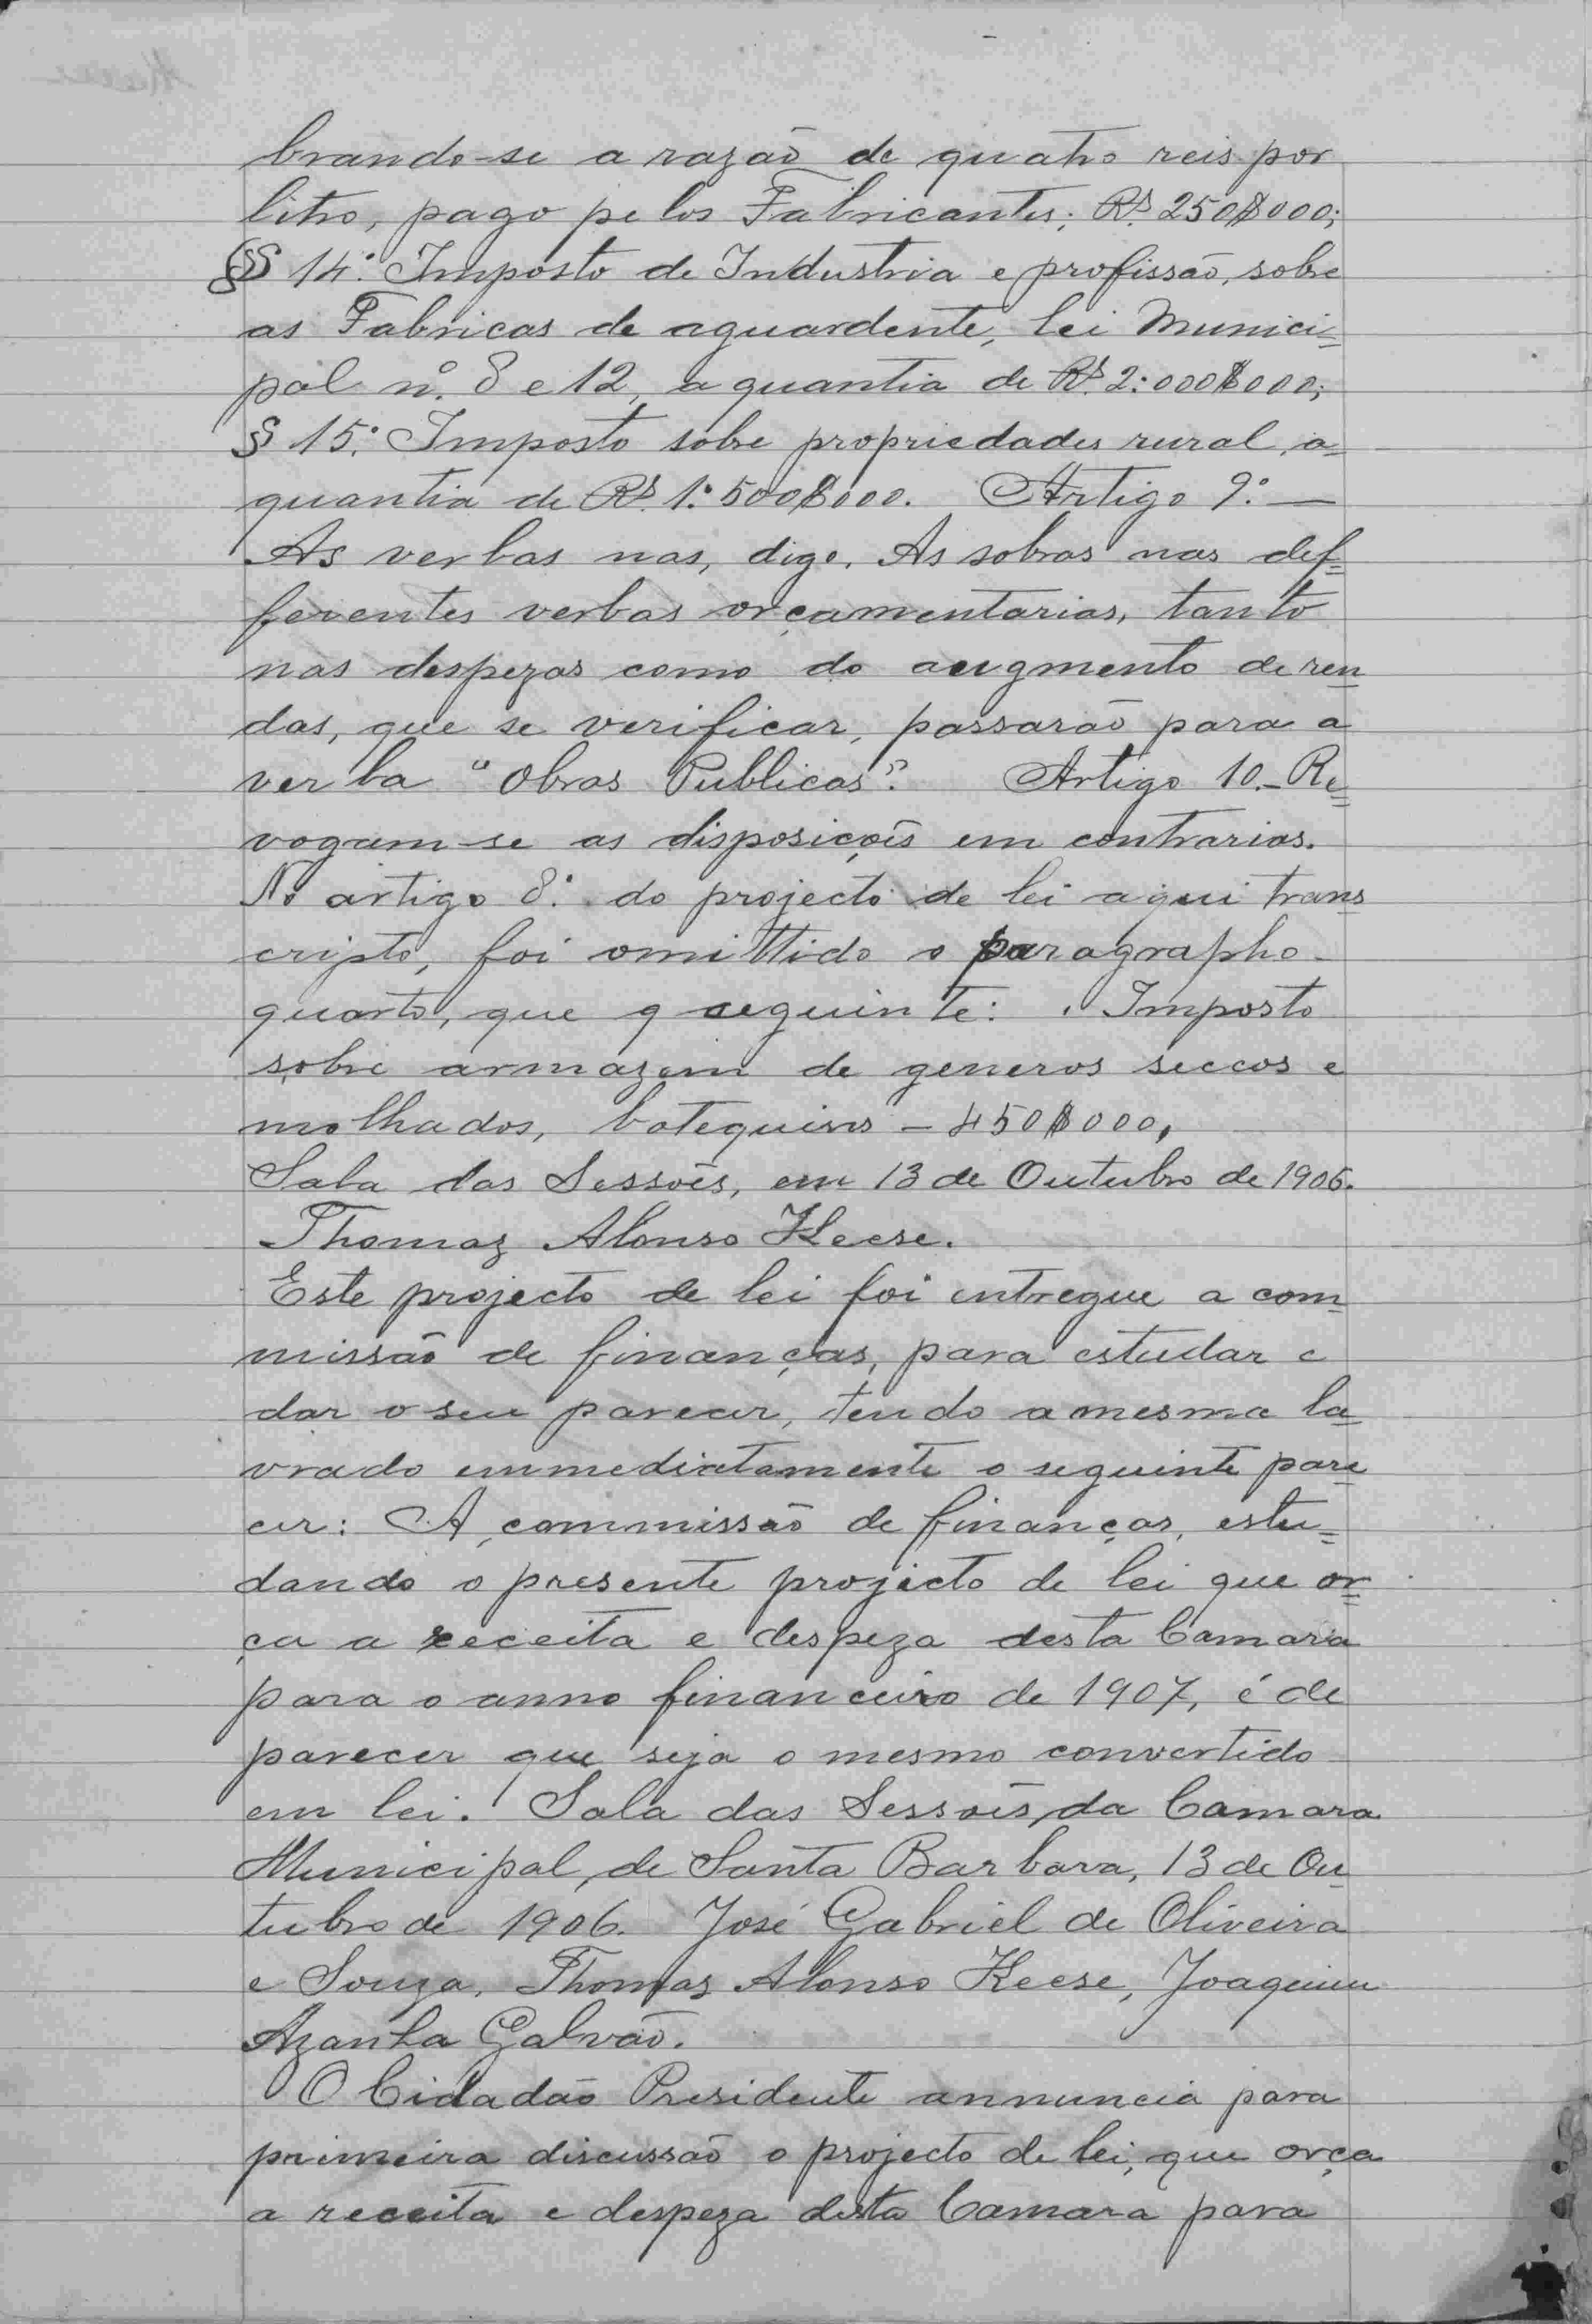 brando-se a razaõ de quatro reis por
litro, pago pelos Fabricantes; Rs. 250$000;
§ 14.º Imposto de Industria e profissão, sobre
as Fabricas de aguardente, lei Munici=
pal nº. 8 e 12, a quantia de Rs. 2:000$000;
§ 15.º Imposto sobre propriedades rural, a=
quantia de Rs. 1:500$000. Artigo 9.º —
As verbas nas, digo, As sobras nas def=
ferentes verbas orçamentarias, tanto
nas despezas como do augmento de ren=
das, que se verificar, passaraõ para a
verba "Obras Publicas". Artigo 10.- Re=
vogam-se as disposiçoẽs em contrarias.
No artigo 8.º do projecto de lei aqui trans=
cripto, foi omittido o paragrapho
quarto, que é o seguinte: Imposto
sobre armazem de generos seccos e
molhados, botequins - 450$000,
Sala das Sessoẽs, em 13 de Outubro de 1906.
Thomaz Alonso Keese.
Este projecto de lei foi entregue a com=
missaõ de finanças, para estudar e
dar o seu parecer, tendo a mesma la=
vrado emmediatamente o seguinte pare=
cer: A commissaõ de finanças, estu=
dando o presente projecto de lei que or=
ça a receita e despeza desta Camara
para o anno financeiro de 1907, é de
parecer que seja o mesmo convertido
em lei. Sala das Sessoẽs, da Camara
Municipal, de Santa Barbara, 13 de Ou=
tubro de 1906. José Gabriel de Oliveira
e Souza, Thomaz Alonso Keese, Joaquim
Azanha Galvaõ.
O Cidadaõ Presidente annuncia para
primeira discussaõ o projecto de lei, que orça
a receita e despeza desta Camara para